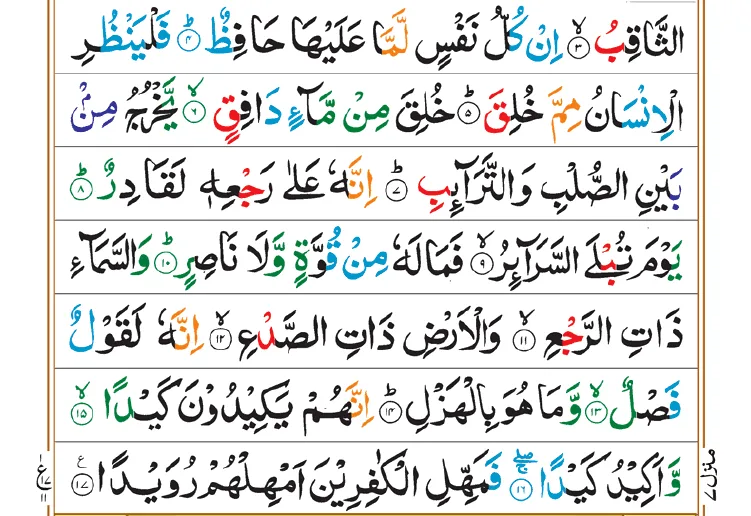 الثَّاقِبُ ۙ﴿۳﴾ اِنْ كُلُّ نَفْسٍ لَّمَّا عَلَيْهَا حَافِظٌ ؕ﴿۴﴾ فَلْيَنْظُرِ
الْاِنْسَانُ مِمَّ خُلِقَ ؕ﴿۵﴾ خُلِقَ مِنْ مَّآءٍ دَافِقٍ ۙ﴿۶﴾ يَّخْرُجُ مِنْۢ
بَيْنِ الصُّلْبِ وَالتَّرَآئِبِ ؕ﴿۷﴾ اِنَّهٗ عَلٰى رَجْعِهٖ لَقَادِرٌ ؕ﴿۸﴾
يَوْمَ تُبْلَى السَّرَآئِرُ ۙ﴿۹﴾ فَمَا لَهٗ مِنْ قُوَّةٍ وَّلَا نَاصِرٍ ؕ﴿۱۰﴾ وَالسَّمَآءِ
ذَاتِ الرَّجْعِ ۙ﴿۱۱﴾ وَالْاَرْضِ ذَاتِ الصَّدْعِ ۙ﴿۱۲﴾ اِنَّهٗ لَقَوْلٌ
فَصْلٌ ۙ﴿۱۳﴾ وَّمَا هُوَ بِالْهَزْلِ ؕ﴿۱۴﴾ اِنَّهُمْ يَكِيْدُوْنَ كَيْدًا ۙ﴿۱۵﴾
وَّاَكِيْدُ كَيْدًا ۚۖ﴿۱۶﴾ فَمَهِّلِ الْكٰفِرِيْنَ اَمْهِلْهُمْ رُوَيْدًا ع﴿۱۷﴾
منزل ۷
ع ۱۷ ۱۱